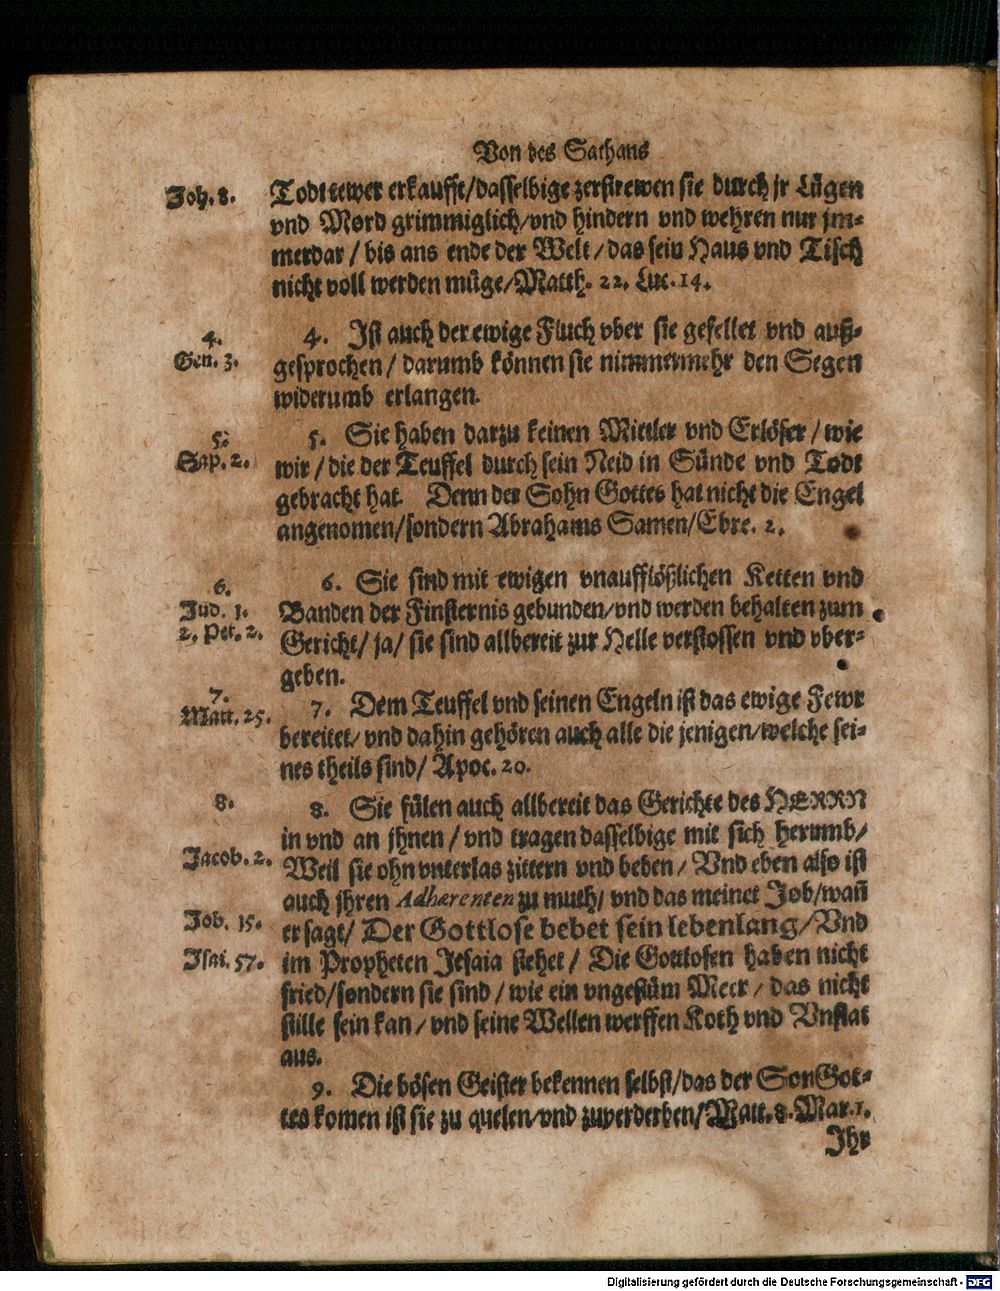 Von des Sathans
Joh. 8.
Todt tewer erkaufft/dasselbige zerstrewen sie durch jr Lügen
vnd Mord grimmiglich/vnd hindern vnd wehren nur jm-
merdar / bis ans ende der Welt / das sein Haus vnd Tisch
nicht voll werden müge/Matth. 22. Luc. 14.
4.
Gen. 3.
4. Ist auch der ewige Fluch vber sie gefellet vnd auß-
gesprochen / darumb können sie nimmermehr den Segen
widerumb erlangen.
5.
Sap. 2.
5. Sie haben darzu keinen Mittler vnd Erlöser / wie
wir / die der Teuffel durch sein Neid in Sünde vnd Todt
gebracht hat. Denn der Sohn Gottes hat nicht die Engel
angenomen/sondern Abrahams Samen/Ebre. 2.
6.
Jud. 1.
2. Pet. 2.
6. Sie sind mit ewigen vnaufflößlichen Ketten vnd
Banden der Finsternis gebunden/vnd werden behalten zum
Gericht/ ja/ sie sind allbereit zur Helle verstossen vnd vber-
geben.
7.
Matt. 25.
7. Dem Teuffel vnd seinen Engeln ist das ewige Fewr
bereitet/ vnd dahin gehören auch alle die jenigen/welche sei-
nes theils sind/ Apoc. 20.
8.
8. Sie fülen auch allbereit das Gerichte des HERRN
in vnd an jhnen / vnd tragen dasselbige mit sich herumb/
Jacob. 2.
Weil sie ohn vnterlas zittern vnd beben / Vnd eben also ist
auch jhren Adhærenten zu muth/ vnd das meinet Job/wañ
Job. 15.
er sagt/ Der Gottlose bebet sein lebenlang/Vnd
Isai. 57.
im Propheten Jesaia stehet / Die Gottlosen haben nicht
fried/sondern sie sind / wie ein vngestüm Meer / das nicht
stille sein kan / vnd seine Wellen werffen Koth vnd Vnflat
aus.
9. Die bösen Geister bekennen selbst/das der Son Got-
tes komen ist sie zu quelen/vnd zuverderben/Matt. 8. Mar. 1.
Ihr
Digitalisierung gefördert durch die Deutsche Forschungsgemeinschaft - DFG